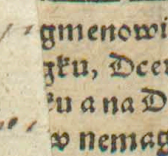 gmenowi
gku, Dcer
ku a na D
w nemag